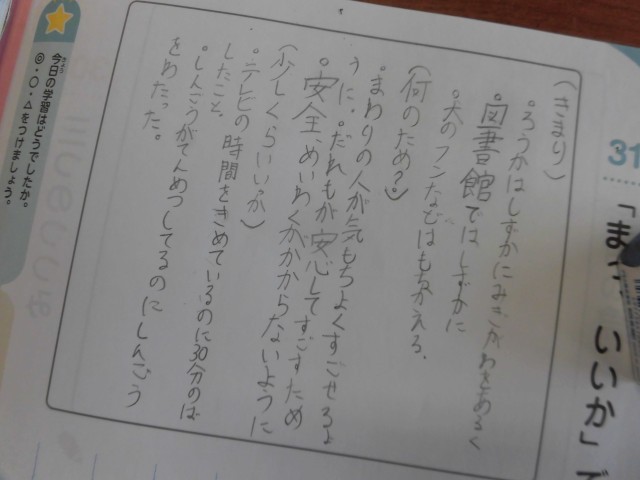 31
「まあ、いいか」で
(きまり)
。ろうかはしずかにみぎがわをあるく
。図書館ではしずかに
。犬のフンなどはもちかえる。
(何のため?)
。まわりの人が気もちよくすごせるよ
うに。だれもが安心してすごすため
。安全、めいわくがかからないように
(少しくらいいいか)
。テレビの時間をきめているのに30分のば
したこと。
。しんごうがてんめつしてるのにしんごう
をわたった。
今日の学習はどうでしたか。
◎・○・△をつけましょう。